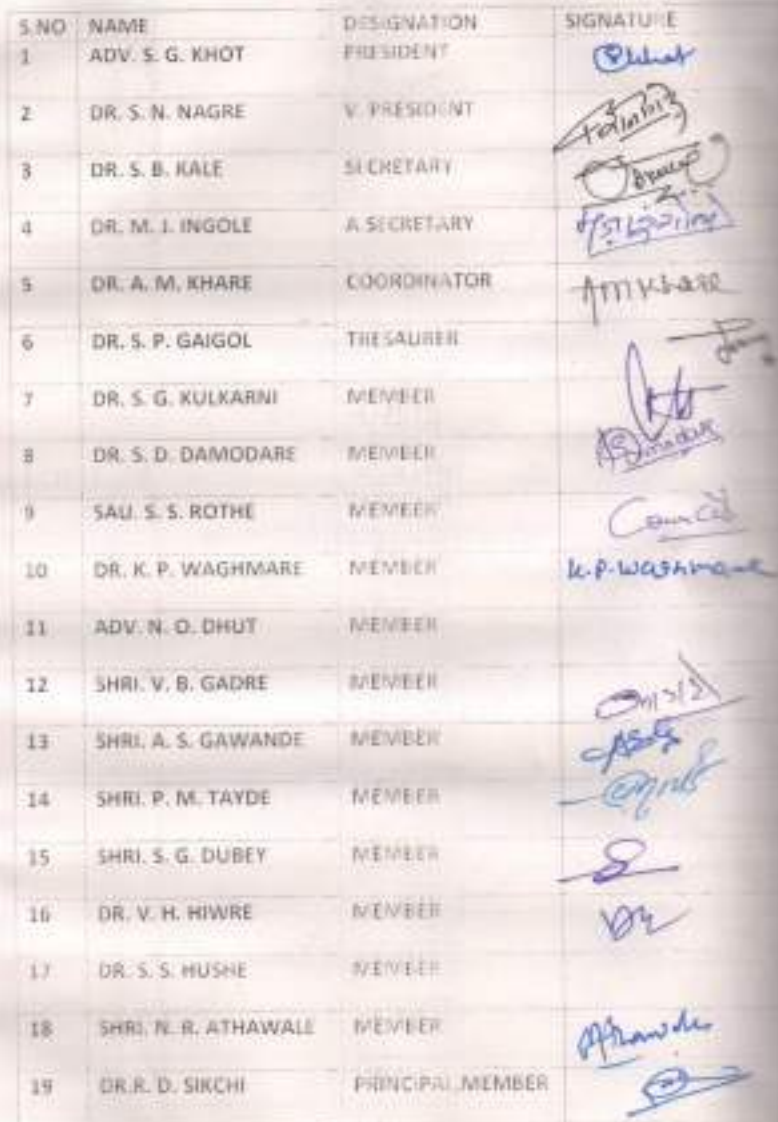 S.NO NAME DESIGNATION SIGNATURE
1 ADV. S. G. KHOT PRESIDENT
2 DR. S. N. NAGRE V. PRESIDENT
3 DR. S. B. KALE SECRETARY
4 DR. M. J. INGOLE A SECRETARY
5 DR. A. M. KHARE COORDINATOR AMKhare
6 DR. S. P. GAIGOL THESAURER
7 DR. S. G. KULKARNI MEMBER
8 DR. S. D. DAMODARE MEMBER
9 SAU. S. S. ROTHE MEMBER
10 DR. K. P. WAGHMARE MEMBER K.P. Waghmare
11 ADV. N. O. DHUT MEMBER
12 SHRI. V. B. GADRE MEMBER
13 SHRI. A. S. GAWANDE MEMBER
14 SHRI. P. M. TAYDE MEMBER
15 SHRI. S. G. DUBEY MEMBER
16 DR. V. H. HIWRE MEMBER
17 DR. S. S. HUSHE MEMBER
18 SHRI. N. R. ATHAWALE MEMBER
19 DR.R. D. SIKCHI PRINCIPAL MEMBER